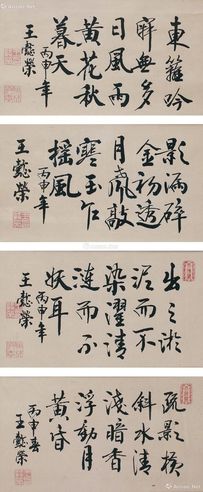 東籬吟
醉無多
日風雨
黃花秋
暮天
丙申年
王懿榮
影漏碎
金初透
月聲敲
寒玉乍
搖風
丙申年
王懿榮
出之淤
泥而不
染濯清
漣而不
妖耳
丙申年
王懿榮
疏影橫
斜水清
淺暗香
浮動月
黃昏
丙申春
王懿榮